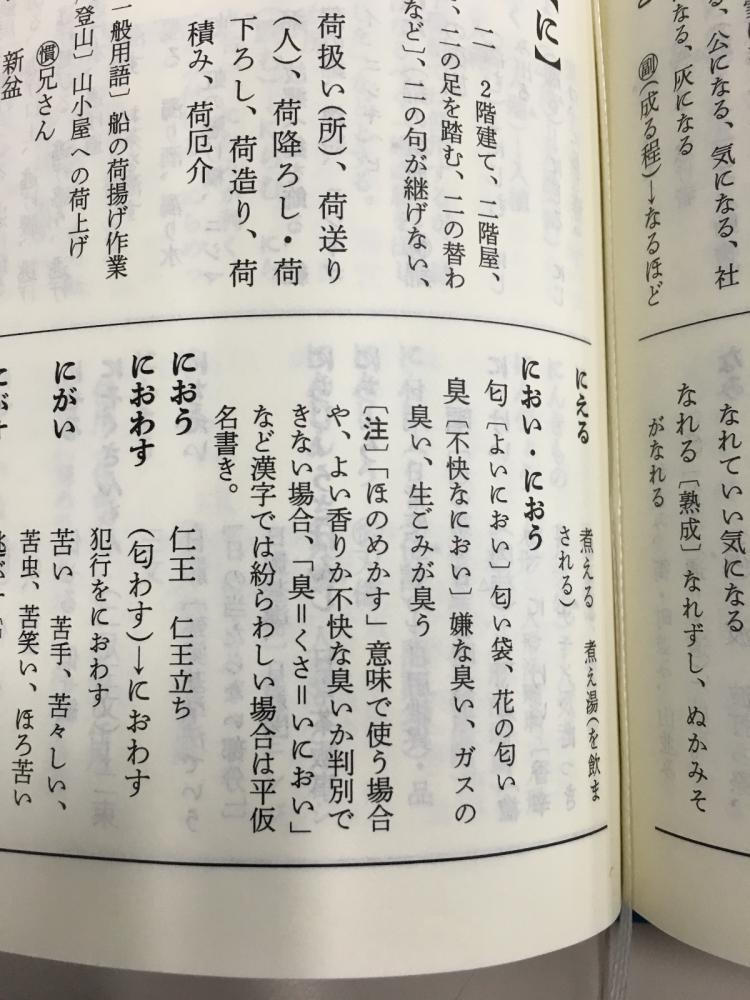 る、公になる、気になる、社
なる、灰になる
㊖(成る程)→なるほど
なれていい気になる
なれる〔熟成〕なれずし、ぬかみそ
がなれる
【に】
二 2階建て、二階屋、
、二の足を踏む、二の替わ
など〕、二の句が継げない、
荷扱い(所)、荷送り
(人)、荷降ろし・荷
下ろし、荷造り、荷
積み、荷厄介
一般用語〕船の荷揚げ作業
登山〕山小屋への荷上げ
㋕兄さん
新盆
にえる 煮える 煮え湯(を飲ま
される)
におい・におう
匂〔よいにおい〕匂い袋、花の匂い
臭〔不快なにおい〕嫌な臭い、ガスの
臭い、生ごみが臭う
〔注〕「ほのめかす」意味で使う場合
や、よい香りか不快な臭いか判別で
きない場合、「臭=くさ=いにおい」
など漢字では紛らわしい場合は平仮
名書き。
におう 仁王 仁王立ち
におわす (匂わす)→におわす
犯行をにおわす
にがい 苦い 苦手、苦々しい、
苦虫、苦笑い、ほろ苦い